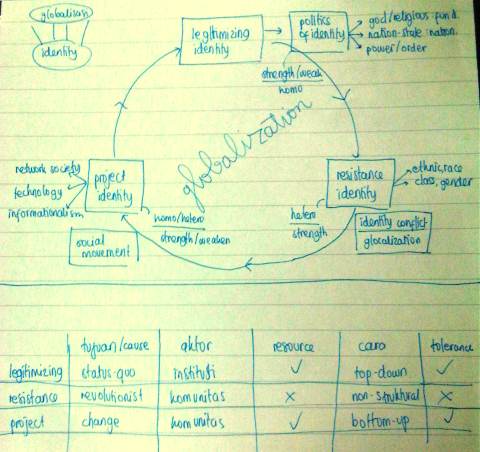 globalisasi
identity
legitimizing
identity
politics
of identity
god/religious: fund.
nation-state: nation.
power/order
strength/weak
homo
globalization
network society
technology
informationalism
project
identity
resistance
identity
ethnic, race
class, gender
homo/hetero
strength/weaken
hetero
strength
identity conflict
glocalization
social
movement
tujuan/cause aktor resource cara tolerance
legitimizing status-quo institusi ✓ top-down ✓
resistance revolutionist komunitas × non-struktural ×
project change komunitas ✓ bottom-up ✓